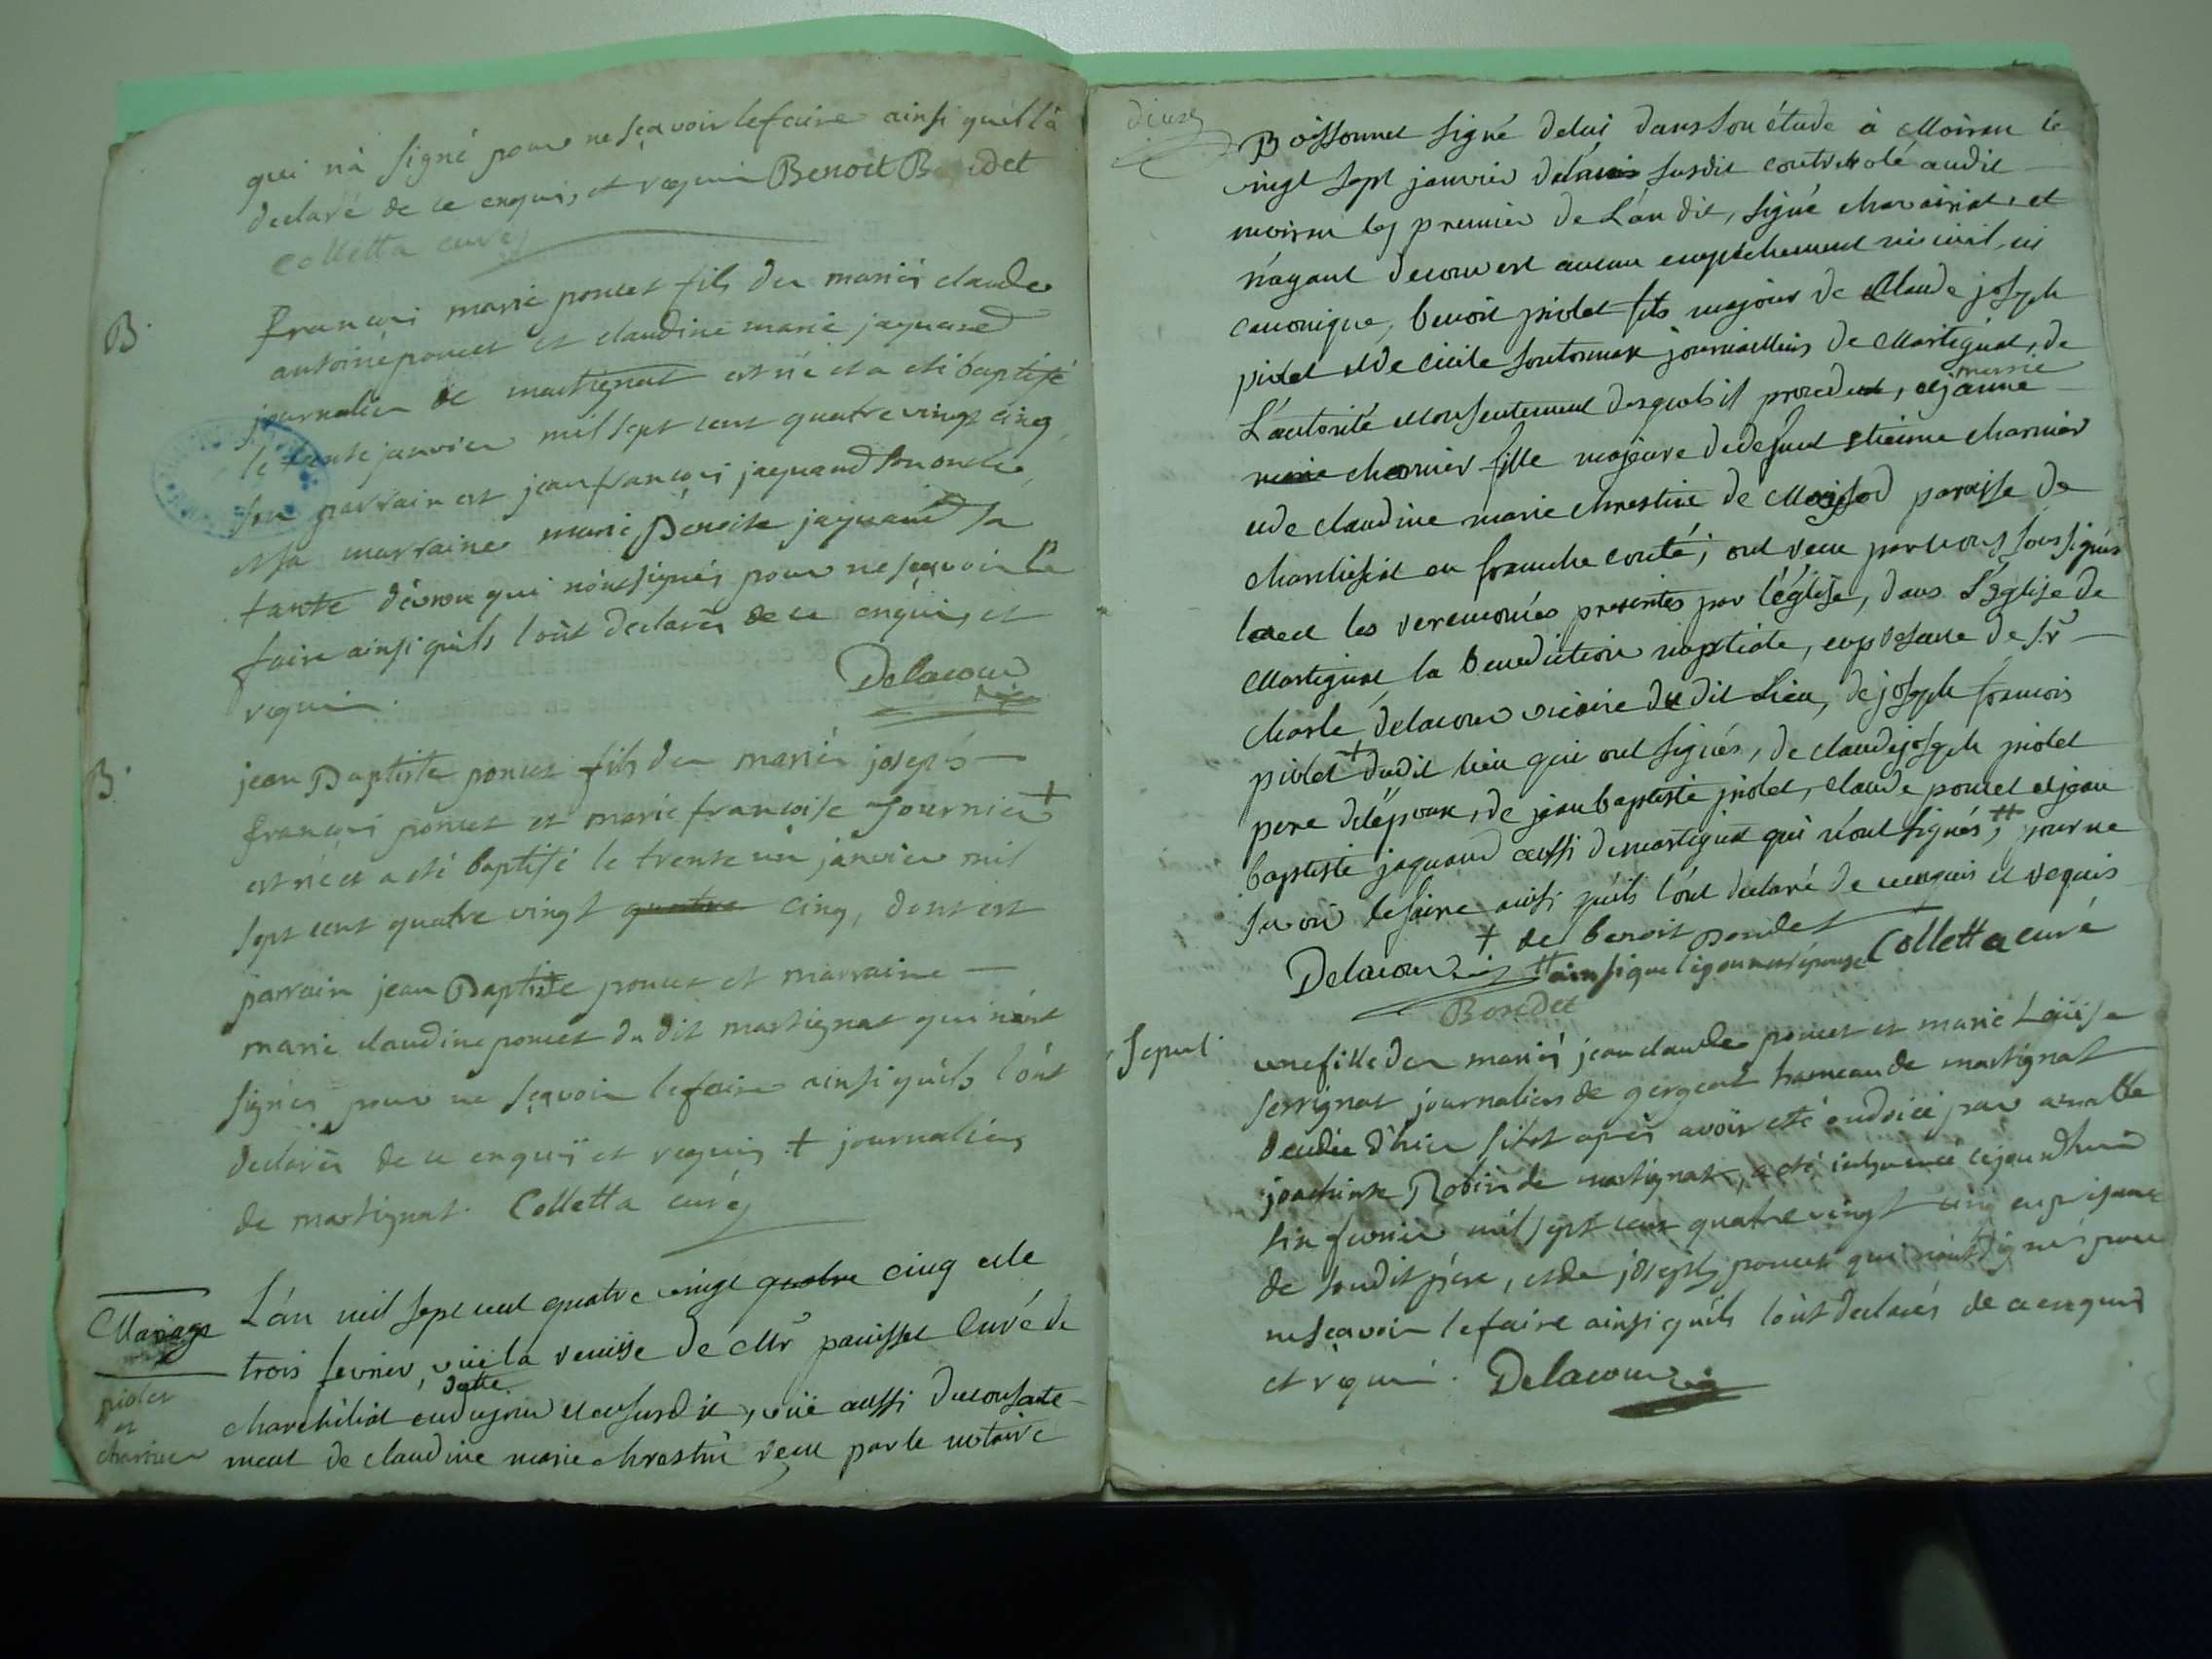 qui n'a signé pour ne sçavoir le faire ainsi quil l'a
declaré de ce enquis, et requis Benoit Bondet
Colletta curé
B.
françois marie poncet fils des mariés claude
antoine poncet et claudine marie jaquand
journalier de martignat est né et a été baptisé
le trente janvier mil sept cent quatre vingt cinq
son parrain est jean françois jaquand son oncle
et sa marraine marie Benoite jaquand sa
tante qui n'ont signés pour ne sçavoir le
faire ainsi quils l'ont declarés de ce enquis, et
requis.
Delacour
B.
jean Baptiste poncet fils des mariés joseph
françois poncet et marie françoise fournier +
est né et a été baptisé le trente un janvier mil
sept cent quatre vingt quatre cinq, dont est
parrain jean Baptiste poncet et marraine
marie claudine poncet du dit martignat qui n'ont
signés pour ne sçavoir le faire ainsi quils l'ont
declarés de ce enquis et requis + journaliers
de martignat. Colletta curé
Mariage
piolet
et
charnier
L'an mil sept cent quatre vingt quatre cinq et le
trois fevrier, vüe la remise de Mr panisset Curé de
charchiliat en datte du jour et an susdit, vüe aussi du consente-
ment de claudine marie chrestin recu par le notaire
Boissonnet signé de lui dans son étude à Moiran le
vingt sept janvier de l'an susdit controllé audit
moiran les premier de L'an dit, signé et
n'ayant decouvert aucun empêchement ni civil ni
canonique, benoit piolet fils majeur de Claude joseph
piolet et de cicile soutonnax journailliers de Martignat, de
L'autorité et consentement desquels il procede, et jeanne
marie
marie charnier fille majeure de defunt etienne charnier
et de claudine marie chrestine de paroisse de
charchiliat en franche conté, ont recu par nous soussignés
les ceremonies presentes par l'église, dans L'Eglise de
Martignat la benediction nuptiale, en presence de Sr
Charle delacour vicaire du dit Lieu, de joseph francois
piolet + dudit lieu qui ont signés, de claude joseph piolet
pere de l'epoux, de jean baptiste piolet, claude poncet et jean
baptiste jaquand aussi de martignat qui n'ont signés, # pour ne
savoir le faire ainsi quils l'ont declaré de ce enquis et requis
+ de benoit bondet
Delacour # ainsi que l'epoux et l'epouse Colletta curé
Bondet
Sepul.
une fille des mariés jean claude poncet et marie Loüise
serrignat journaliers de gergeat hameau de martignat
decedée d'hier sitot après avoir eté ondoiée par
Robin de martignat, a été inhumée cejourdhui
six fevrier mil sept cent quatre vingt cinq en presence
de sondit père, et de joseph poncet qui n'ont signés pour
ne sçavoir le faire ainsi quils l'ont declarés de ce enquis
et requis. Delacour